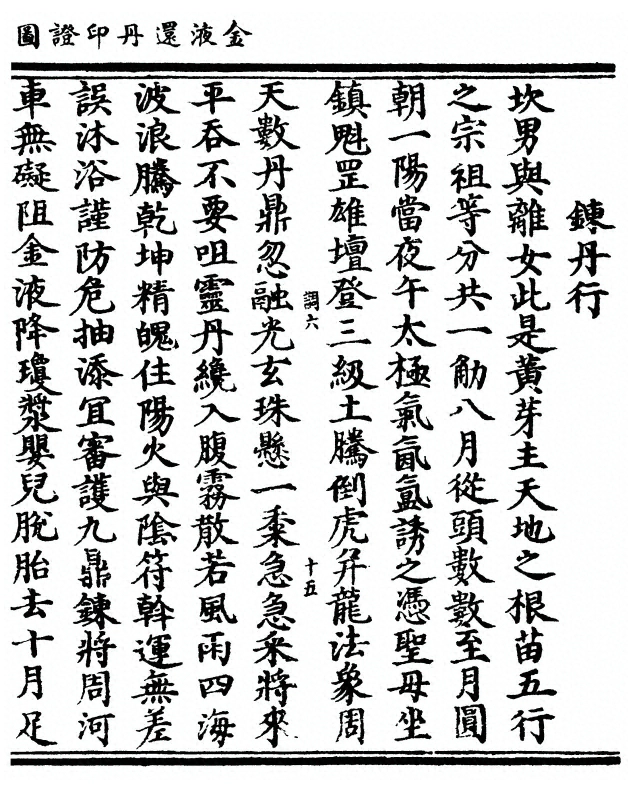 金液還丹印證圖
鍊丹行
坎男與離女此是黃芽主天地之根苗五行
之宗祖等分共一觔八月從頭數數至月圓
朝一陽當夜午太極氣氤氳誘之憑聖母坐
鎮魁罡雄壇登三級土騰倒虎弁龍法象周
天數丹鼎忽融光玄珠懸一黍急急采將來
調六
十五
平吞不要咀靈丹纔入腹霧散若風雨四海
波浪騰乾坤精魄住陽火與陰符斡運無差
誤沐浴謹防危抽添宜審護九鼎鍊將周河
車無礙阻金液降瓊漿嬰兒脫胎去十月足